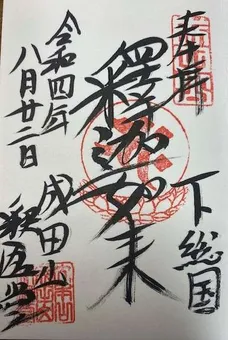 奉拝
下総国
釋迦如来
成田山
釈迦堂
令和四年
八月廿二日